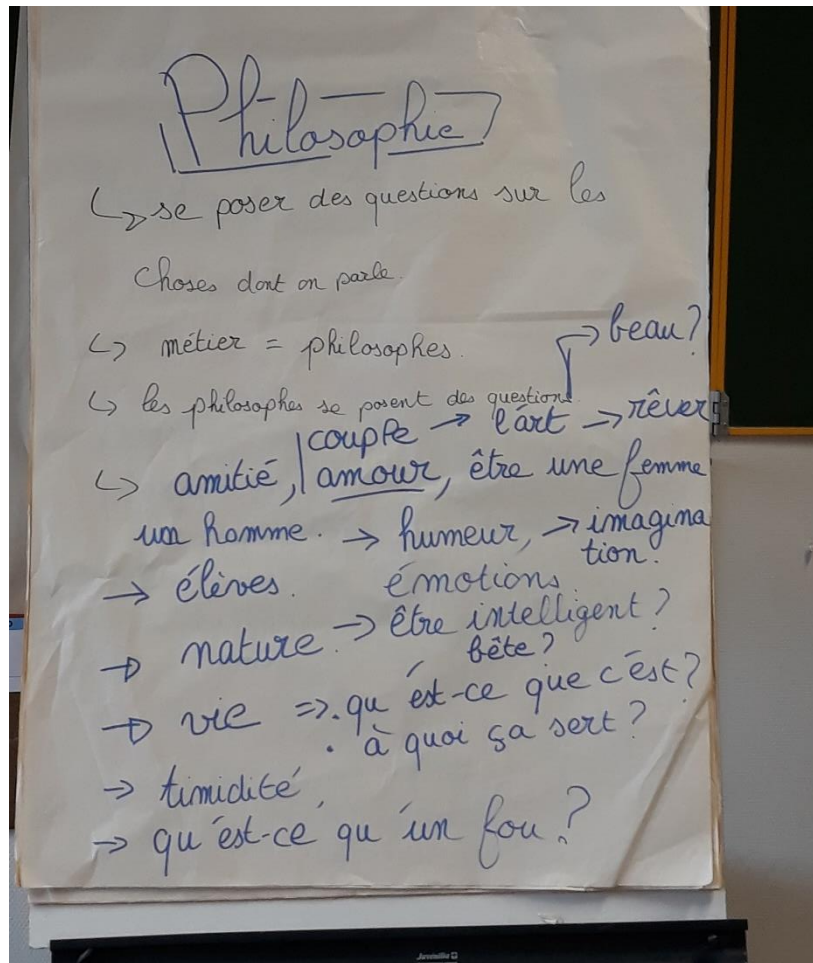 Philosophie
↳ se poser des questions sur les
choses dont on parle.
↳ métier = philosophes.
→ beau?
↳ les philosophes se posent des questions
couple → l'art → rêver
↳ amitié, amour, être une femme
un homme. → humeur, → imagina
tion.
→ élèves. émotions
→ nature. → être intelligent?
bête?
→ vie => . qu'est-ce que c'est?
. à quoi ça sert?
→ timidité,
→ qu'est-ce qu'un fou?